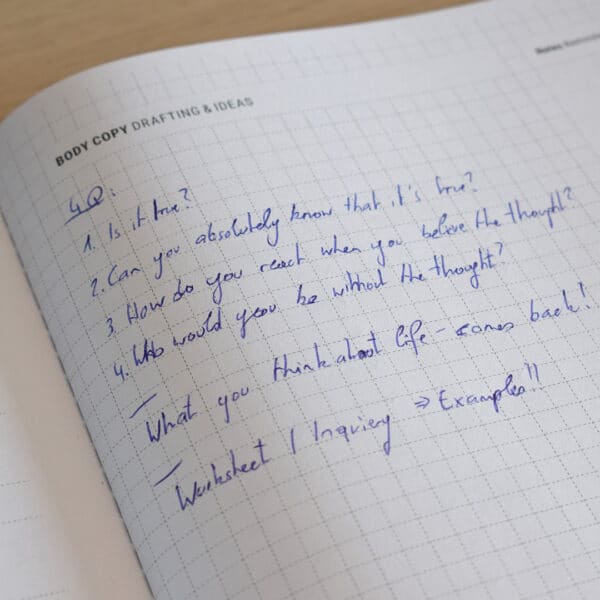 BODY COPY DRAFTING & IDEAS
Notes
4Q:
1. Is it true?
2. Can you absolutely know that it's true?
3. How do you react when you believe the thought?
4. Who would you be without the thought?
What you think about life - comes back!
Worksheet / Inquiery ⇒ Examples!!